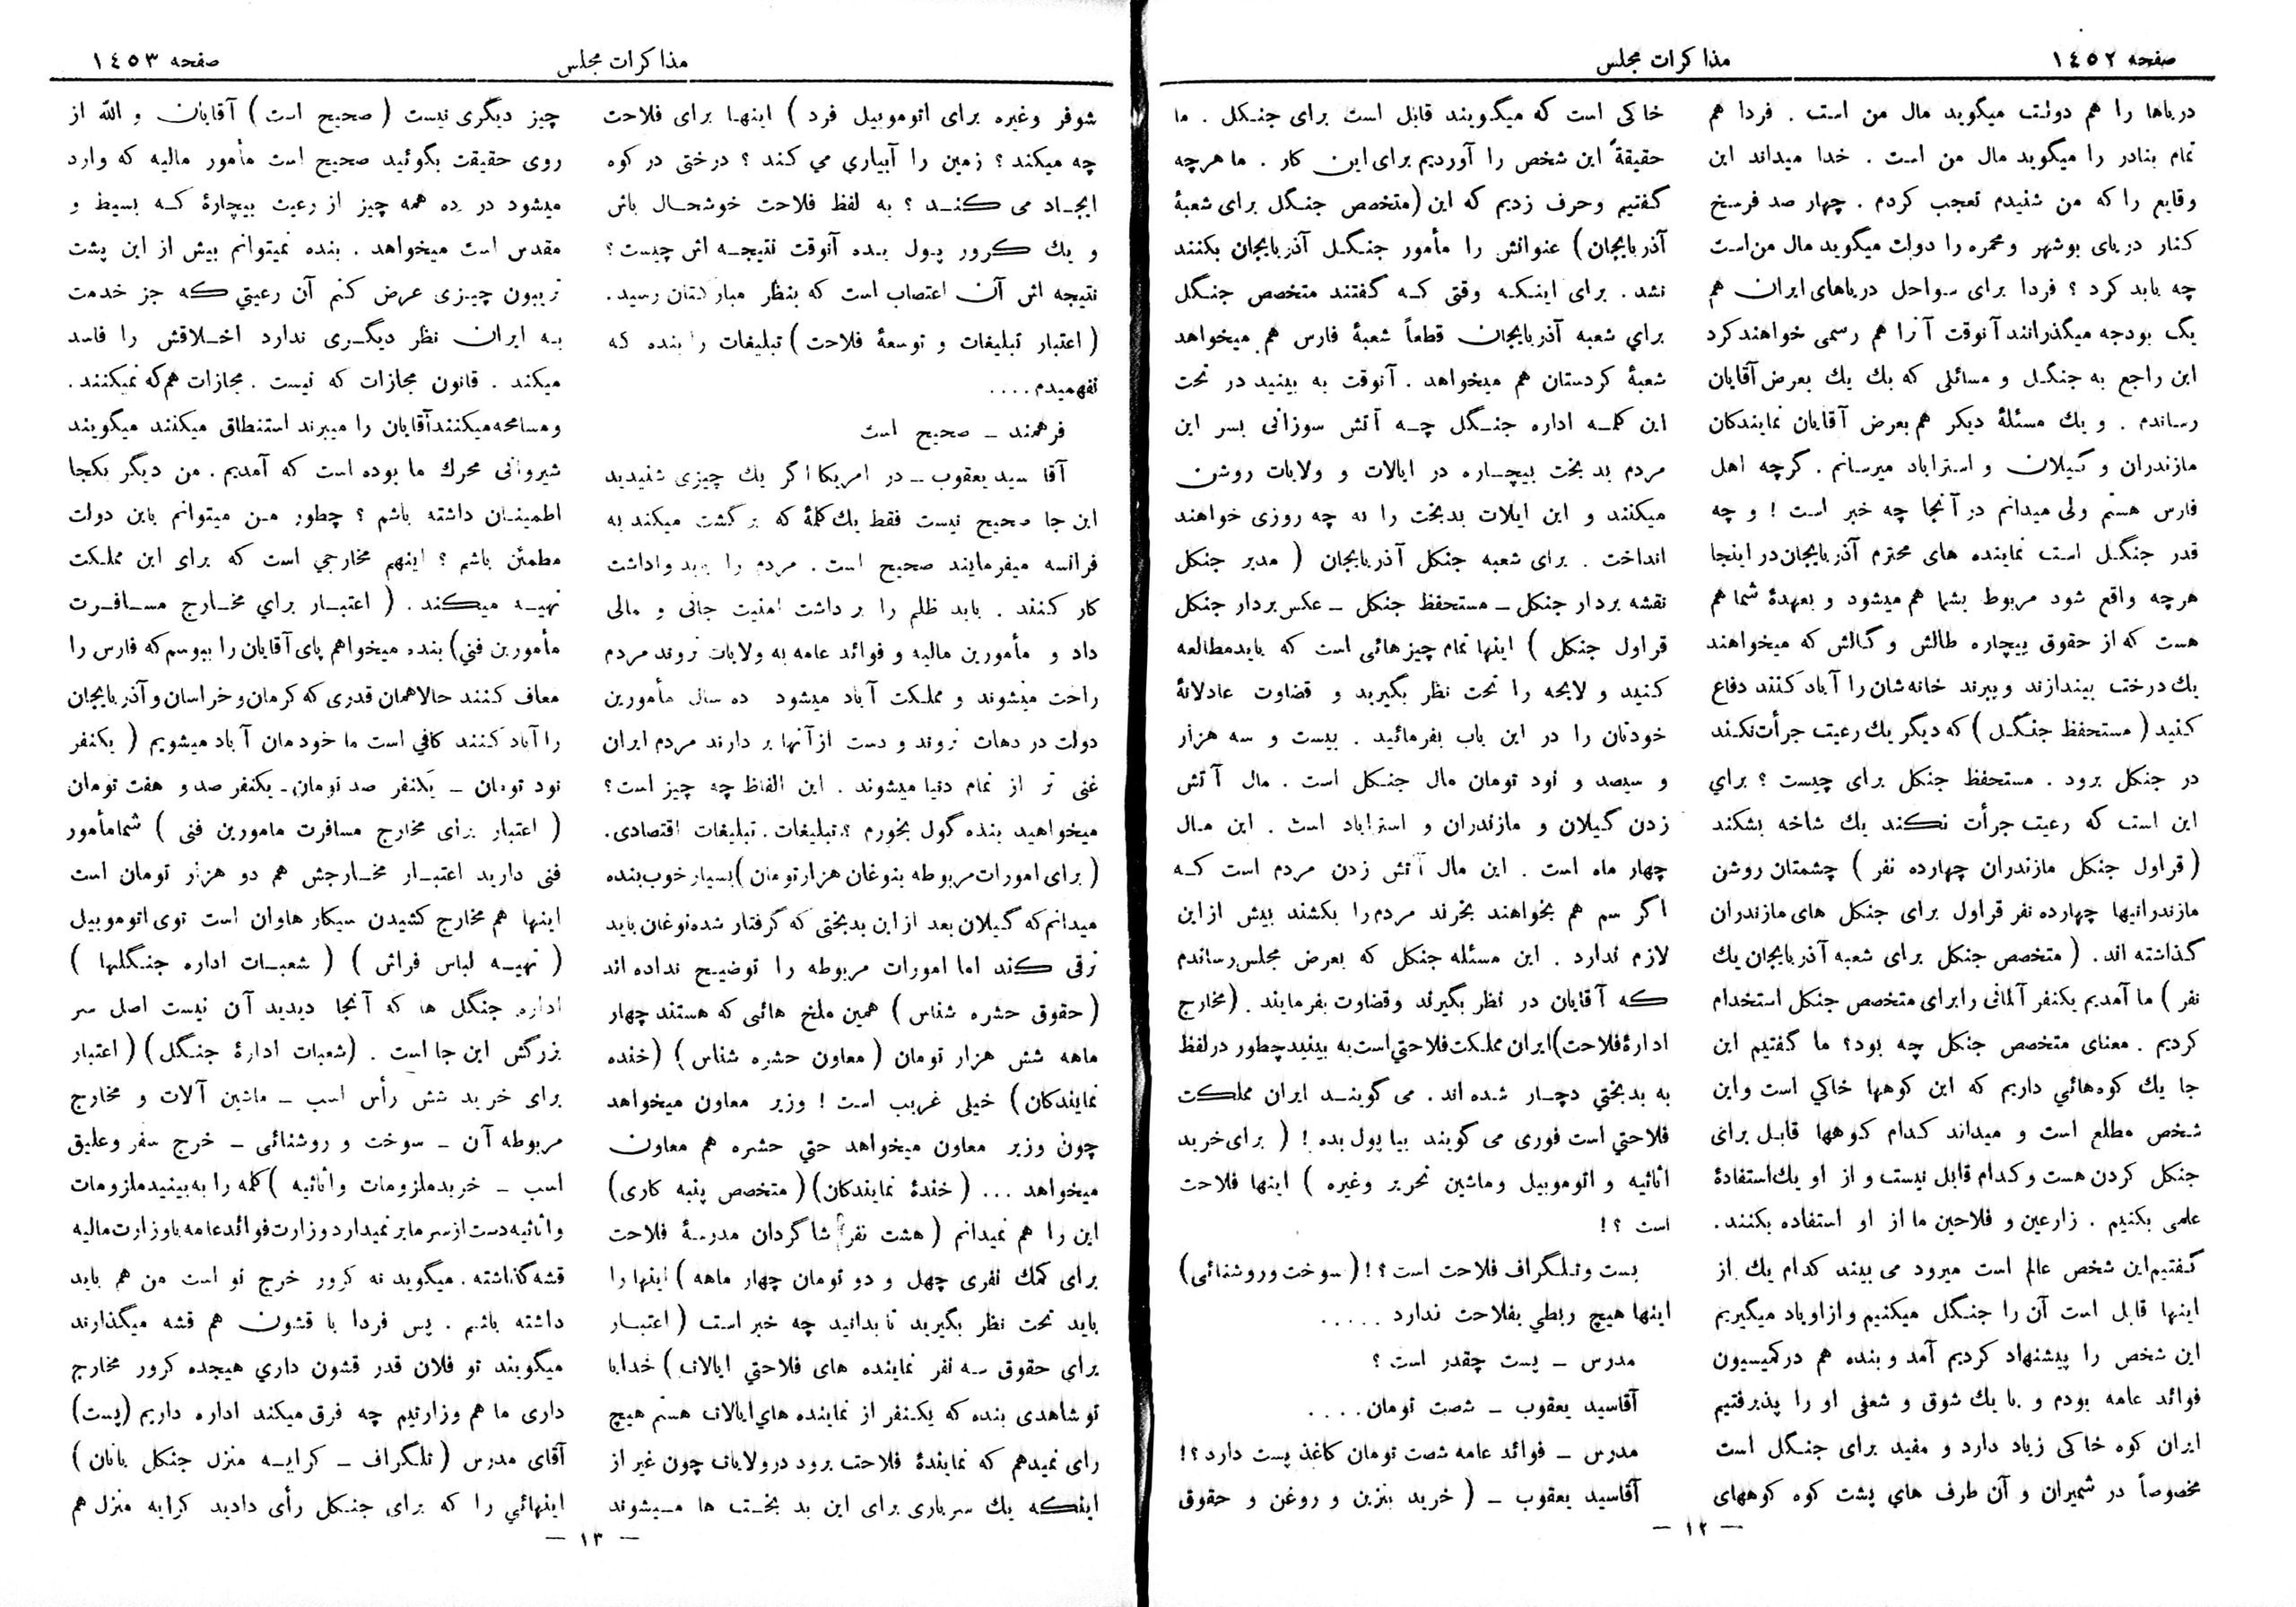 صفحه ١٤٥٢
مذاکرات مجلس
دریاها را هم دولت میگوید مال من است . فردا هم
تمام بنادر را میگوید مال من است . خدا میداند این
وقایع را که من شنیدم تعجب کردم . چهار صد فرسخ
کنار دریای بوشهر و محمره را دولت میگوید مال من است
چه باید کرد ؟ فردا برای سواحل دریاهای ایران هم
یک بودجه میگذرانند آنوقت آنرا هم رسمی خواهند کرد
این راجع به جنگل و مسائلی که یك یك بعرض آقایان
رساندم . و یك مسئلهٔ دیگر هم بعرض آقایان نمایندکان
مازندران و گیلان و استراباد میرسانم . گرچه اهل
فارس هستم ولی میدانم در آنجا چه خبر است ! و چه
قدر جنگل است نماینده های محترم آذربایجان در اینجا
هرچه واقع شود مربوط بشما هم میشود و بعهدهٔ شما هم
هست که از حقوق بیچاره طالش و گالش که میخواهند
یك درخت بیندازند و ببرند خانه‌شان را آباد کنند دفاع
کنید ( مستحفظ جنگل ) که دیگر یك رعیت جرأت نکند
در جنکل برود . مستحفظ جنکل برای چیست ؟ براي
این است که رعیت جرأت نکند یك شاخه بشکند
( قراول جنکل مازندران چهارده نفر ) چشمتان روشن
مازندرانیها چهارده نفر قراول برای جنکل های مازندران
گذاشته اند . ( متخصص جنکل برای شعبه آذربایجان یك
نفر ) ما آمدیم یکنفر آلمانی را برای متخصص جنکل استخدام
کردیم . معنای متخصص جنکل چه بود؟ ما گفتیم این
جا یك کوه‌هائي داریم که این کوهها خاکي است و این
شخص مطلع است و میداند کدام کوهها قابل برای
جنکل کردن هست و کدام قابل نیست و از او یك استفادهٔ
علمی بکنیم . زارعین و فلاحین ما از او استفاده بکنند .
گفتیم این شخص عالم است میرود می بیند کدام یك از
اینها قابل است آن را جنگل میکنیم و از او یاد میگیریم
این شخص را پیشنهاد کردیم آمد و بنده هم درکمیسیون
فوائد عامه بودم و با یك شوق و شعفی او را پذیرفتیم
ایران کوه خاکی زیاد دارد و مفید برای جنگل است
مخصوصاً در شمیران و آن طرف هاي پشت کوه کوههای
خاکی است که میگویند قابل است برای جنگل . ما
حقیقةً این شخص را آوردیم برای این کار . ما هرچه
گفتیم و حرف زدیم که این (متخصص جنگل برای شعبهٔ
آذربایجان) عنوانش را مأمور جنگل آذربایجان بکنند
نشد . برای اینکه وقتی که گفتند متخصص جنگل
براي شعبه آذربایجان قطعاً شعبهٔ فارس هم میخواهد
شعبهٔ کردستان هم میخواهد . آنوقت به بینید در تحت
این کلمه اداره جنگل چه آتش سوزانی بسر این
مردم بد بخت بیچاره در ایالات و ولایات روشن
میکنند و این ایلات بدبخت را به چه روزی خواهند
انداخت . برای شعبه جنکل آذربایجان ( مدیر جنکل
نقشه بردار جنکل ـ مستحفظ جنکل ـ عکس بردار جنکل
قراول جنکل ) اینها تمام چیزهائی است که باید مطالعه
کنید و لایحه را تحت نظر بگیرید و قضاوت عادلانهٔ
خودتان را در این باب بفرمائید . بیست و سه هزار
و سیصد و نود تومان مال جنکل است . مال آتش
زدن گیلان و مازندران و استراباد است . این مال
چهار ماه است . این مال آتش زدن مردم است که
اگر سم هم بخواهند بخرند مردم را بکشند بیش از این
لازم ندارد . این مسئله جنکل که بعرض مجلس رساندم
که آقایان در نظر بگیرند و قضاوت بفرمایند . (مخارج
ادارهٔ فلاحت) ایران مملکت فلاحتي است به بینید چطور در لفظ
به بدبختي دچار شده اند . می گویند ایران مملکت
فلاحتي است فوری می گویند بیا پول بده ! ( برای خرید
اثاثیه و اتوموبیل و ماشین تحریر وغیره ) اینها فلاحت
است ؟ !
پست و تلگراف فلاحت است ؟ ! ( سوخت و روشنائی )
اینها هیچ ربطي بفلاحت ندارد . . . . .
مدرس ـ پست چقدر است ؟
آقاسید یعقوب ـ شصت تومان . . . .
مدرس ـ فوائد عامه شصت تومان کاغذ پست دارد ؟ !
آقاسید یعقوب ـ ( خرید بنزین و روغن و حقوق
ـ ١٢ ـ
مذاکرات مجلس
صفحه ١٤٥٣
شوفر وغیره برای اتوموبیل فرد ) اینها برای فلاحت
چه میکند ؟ زمین را آبیاري مي کند ؟ درختی در کوه
ایجاد می کند ؟ به لفظ فلاحت خوشحال باش
و یك کرور پول بده آنوقت نتیجه اش چیست ؟
نتیجه اش آن اعتصاب است که بنظر مبارکتان رسید .
( اعتبار تبلیغات و توسعهٔ فلاحت ) تبلیغات را بنده که
نفهمیدم . . . .
فرهمند ـ صحیح است
آقا سید یعقوب ـ در امریکا اگر یك چیزی شنیدید
این جا صحیح نیست فقط یك کلمهٔ که برگشت میکند به
فرانسه میفرمایند صحیح است . مردم را باید واداشت
کار کنند . باید ظلم را بر داشت امنیت جانی و مالی
داد و مأمورین مالیه و فوائد عامه به ولایات نروند مردم
راحت میشوند و مملکت آباد میشود ده سال مأمورین
دولت در دهات نروند و دست از آنها بر دارند مردم ایران
غنی تر از تمام دنیا میشوند . این الفاظ چه چیز است ؟
میخواهید بنده گول بخورم ؟ تبلیغات . تبلیغات اقتصادی .
( برای امورات مربوطه بنوغان هزار تومان ) بسیار خوب بنده
میدانم که گیلان بعد از این بدبختی که گرفتار شده نوغان باید
ترقی کند اما امورات مربوطه را توضیح نداده اند
( حقوق حشره شناس ) همین ملخ هائی که هستند چهار
ماهه شش هزار تومان ( معاون حشره شناس ) (خنده
نمایندکان) خیلی غریب است ! وزیر معاون میخواهد
چون وزیر معاون میخواهد حتي حشره هم معاون
میخواهد ... ( خندهٔ نمایندکان) ( متخصص پنبه کاری )
این را هم نمیدانم ( هشت نفر شاگردان مدرسهٔ فلاحت
برای کمك نفری چهل و دو تومان چهار ماهه ) اینها را
باید تحت نظر بگیرید تا بدانید چه خبر است ( اعتبار
براي حقوق سه نفر نماینده های فلاحتي ایالات ) خدایا
تو شاهدی بنده که یکنفر از نماینده هاي ایالات هستم هیچ
رای نمیدهم که نمایندهٔ فلاحت برود در ولایات چون غیر از
اینکه یك سرباری برای این بد بخت ها میشوند
چیز دیگری نیست ( صحیح است ) آقایان و الله از
روی حقیقت بگوئید صحیح است مأمور مالیه که وارد
میشود در ده همه چیز از رعیت بیچارهٔ که بسیط و
مقدس است میخواهد . بنده نمیتوانم بیش از این پشت
تریبون چیزی عرض کنم آن رعیتي که جز خدمت
به ایران نظر دیگری ندارد اخلاقش را فاسد
میکند . قانون مجازات که نیست . مجازات هم که نمیکنند .
و مسامحه میکنند آقایان را میبرند استنطاق میکنند میگویند
شیروانی محرك ما بوده است که آمدیم . من دیگر بکجا
اطمینان داشته باشم ؟ چطور من میتوانم باین دولت
مطمئن باشم ؟ اینهم مخارجي است که برای این مملکت
تهیه میکند . ( اعتبار براي مخارج مسافرت
مأمورین فني ) بنده میخواهم پای آقایان را ببوسم که فارس را
معاف کنند حالا همان قدری که کرمان و خراسان و آذربایجان
را آباد کنند کافي است ما خودمان آباد میشویم ( یکنفر
نود تومان ـ یکنفر صد تومان ـ یکنفر صد و هفت تومان
( اعتبار برای مخارج مسافرت مامورین فنی ) شما مأمور
فنی دارید اعتبار مخارجش هم دو هزار تومان است
اینها هم مخارج کشیدن سیکار هاوان است توی اتوموبیل
( تهیه لباس فراش ) ( شعبات اداره جنگلها )
اداره جنگل ها که آنجا دیدید آن نیست اصل سر
بزرگش این جا است . (شعبات ادارهٔ جنگل) ( اعتبار
برای خرید شش رأس اسب ـ ماشین آلات و مخارج
مربوطه آن ـ سوخت و روشنائی ـ خرج سفر و علیق
اسب ـ خرید ملزومات و اثاثیه ) کلمه را به بینید ملزومات
و اثاثیه دست از سر ما بر نمیدارد وزارت فوائد عامه با وزارت مالیه
قشه گذاشته . میگوید نه کرور خرج تو است من هم باید
داشته باشم . پس فردا با قشون هم قشه میگذارند
میگویند تو فلان قدر قشون داري هیجده کرور مخارج
داری ما هم وزارتیم چه فرق میکند اداره داریم (پست)
آقای مدرس ( تلگراف ـ کرایه منزل جنکل بانان )
اینهائي را که برای جنکل رأی دادید کرایه منزل هم
ـ ١٣ ـ